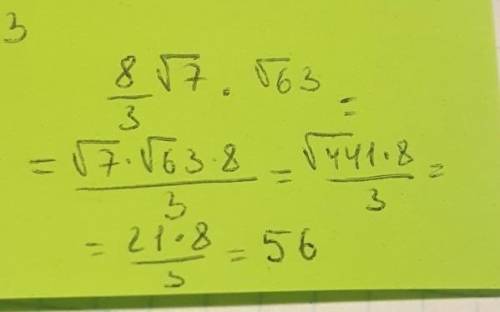 3
8/3 √7 · √63 =
= √7·√63·8/3 = √441·8/3 =
= 21·8/3 = 56